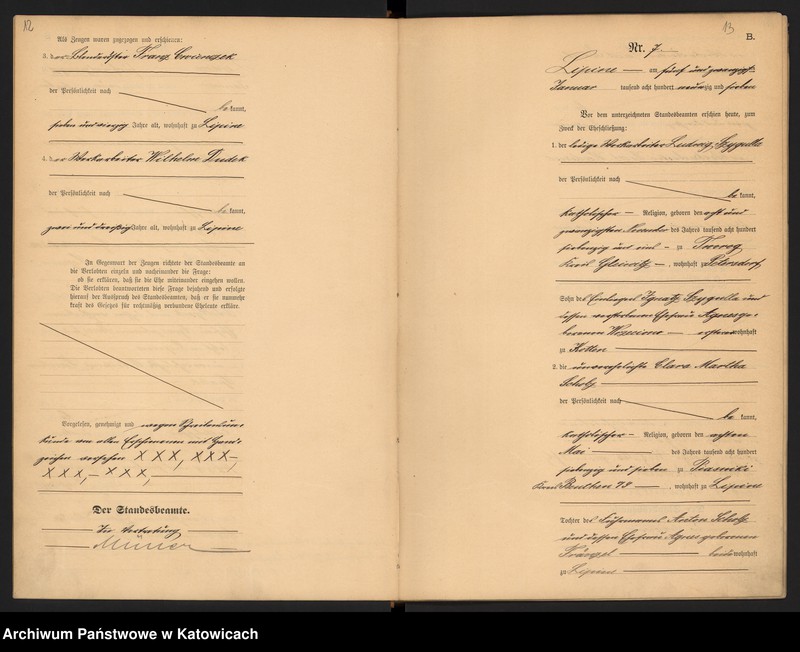 12
Als Zeugen waren zugezogen und erschienen:
3. der Franz
der Persönlichkeit nach
be kannt,
sieben und vierzig Jahre alt, wohnhaft zu Lipine
4. der Werkarbeiter Wilhelm Dudek
der Persönlichkeit nach
be kannt,
zwei und dreißig Jahre alt, wohnhaft zu Lipine
In Gegenwart der Zeugen richtete der Standesbeamte an
die Verlobten einzeln und nacheinander die Frage:
ob sie erklären, daß sie die Ehe miteinander eingehen wollen.
Die Verlobten beantworteten diese Frage bejahend und erfolgte
hierauf der Ausspruch des Standesbeamten, daß er sie nunmehr
kraft des Gesetzes für rechtmäßig verbundene Eheleute erkläre.
Vorgelesen, genehmigt und wegen Schreibensun-
kunde von allen Erschienenen mit Hand-
zeichen versehen XXX, XXX,
XXX, XXX,
Der Standesbeamte.
In Vertretung
Müller
13
B.
Nr. 7
Lipine am fünf und zwanzigsten
Januar tausend acht hundert neunzig und sieben
Vor dem unterzeichneten Standesbeamten erschien heute, zum
Zweck der Eheschließung:
1. der ledige Werkarbeiter Ludwig Szygulla
der Persönlichkeit nach
be kannt,
katholischer Religion, geboren den acht und
zwanzigsten des Jahres tausend acht hundert
siebenzig und eins zu Tworog
Kreis Gleiwitz, wohnhaft zu Petersdorf
Sohn des Einliegers Ignatz Szygulla und
dessen verstorbenen Ehefrau Agnes ge-
borenen ersterer wohnhaft
zu Kotten
2. die unverehelichte Clara Martha
Scholz
der Persönlichkeit nach
be kannt,
katholischer Religion, geboren den achten
Mai des Jahres tausend acht hundert
siebenzig und sieben zu Piasniki
Kreis Beuthen, wohnhaft zu Lipine
Tochter des Anton Scholz
und dessen Ehefrau Agnes geborenen
beide wohnhaft
zu Lipine
Archiwum Państwowe w Katowicach